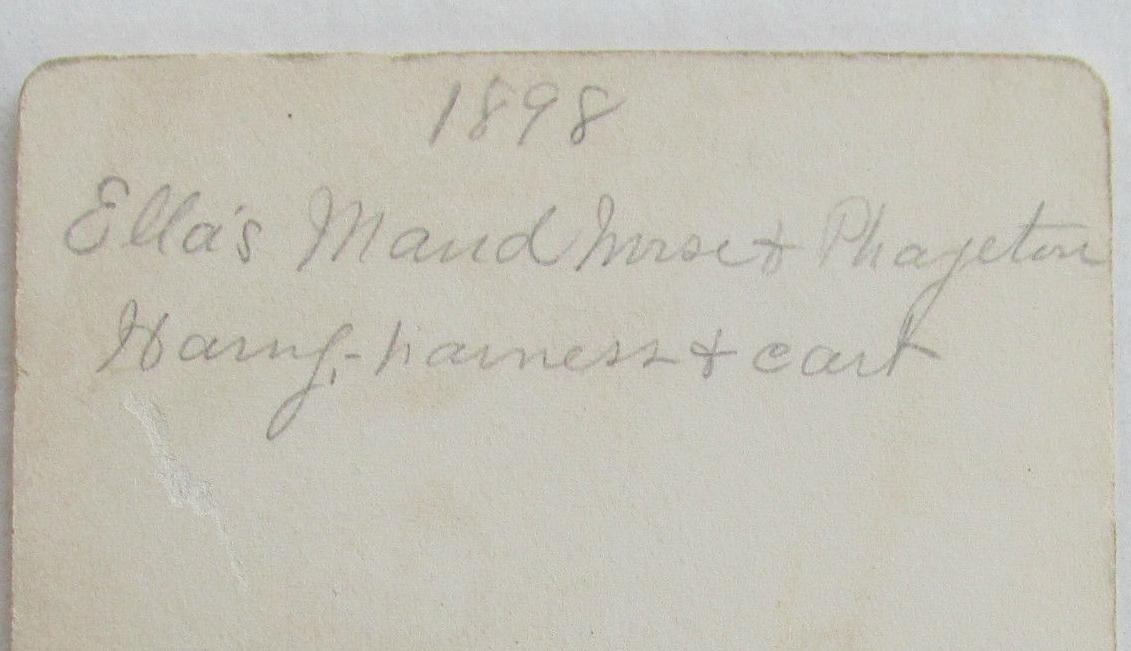 1898
Ella's Maud horse & Phayeton
harness & cart